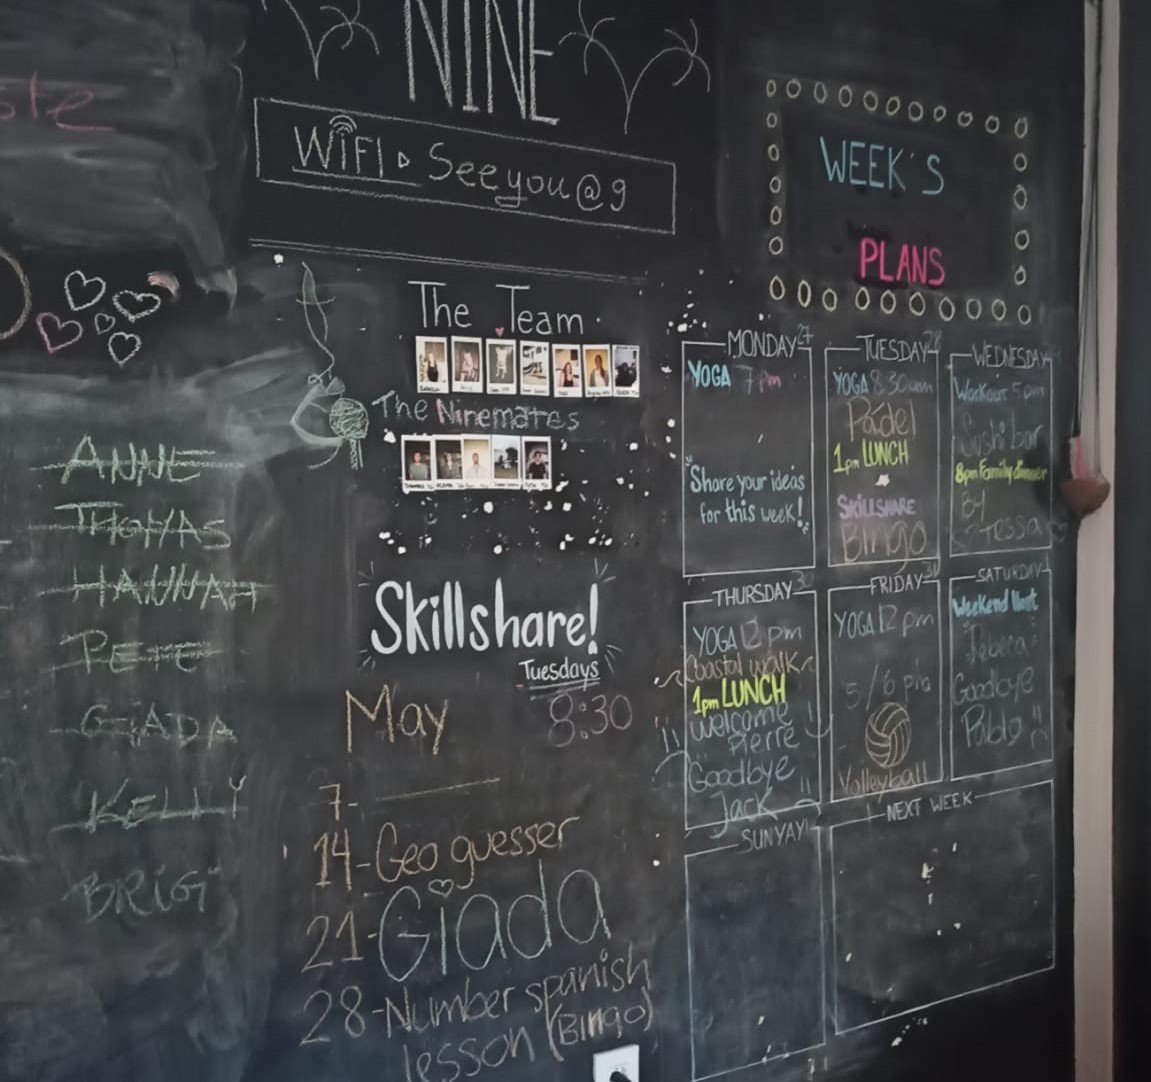 ste
NINE
WiFi Seeyou@9
WEEK'S
PLANS
The Team
The Ninemates
ANNE
THOMAS
HANNAH
PETE
GIADA
KELLY
BRIGI
Skillshare!
Tuesdays
May 8:30
7-
14-Geo guesser
21-Giada
28-Number spanish
lesson (Bingo)
MONDAY 27
YOGA 7pm
Share your ideas
for this week!
TUESDAY 28
YOGA 8:30am
Padel
1pm LUNCH
SKILLSHARE
Bingo
WEDNESDAY
Workout 5pm
Sushi bar
8pm Family dinner
By
Tessa
THURSDAY 30
YOGA 12pm
Coastal walk
1pm LUNCH
Welcome
Pierre
Goodbye
Jack
FRIDAY 31
YOGA 12pm
5/6 pm
Volleyball
SATURDAY
Weekend Host
Rebeca
Goodbye
Pablo
SUNYAY!
NEXT WEEK